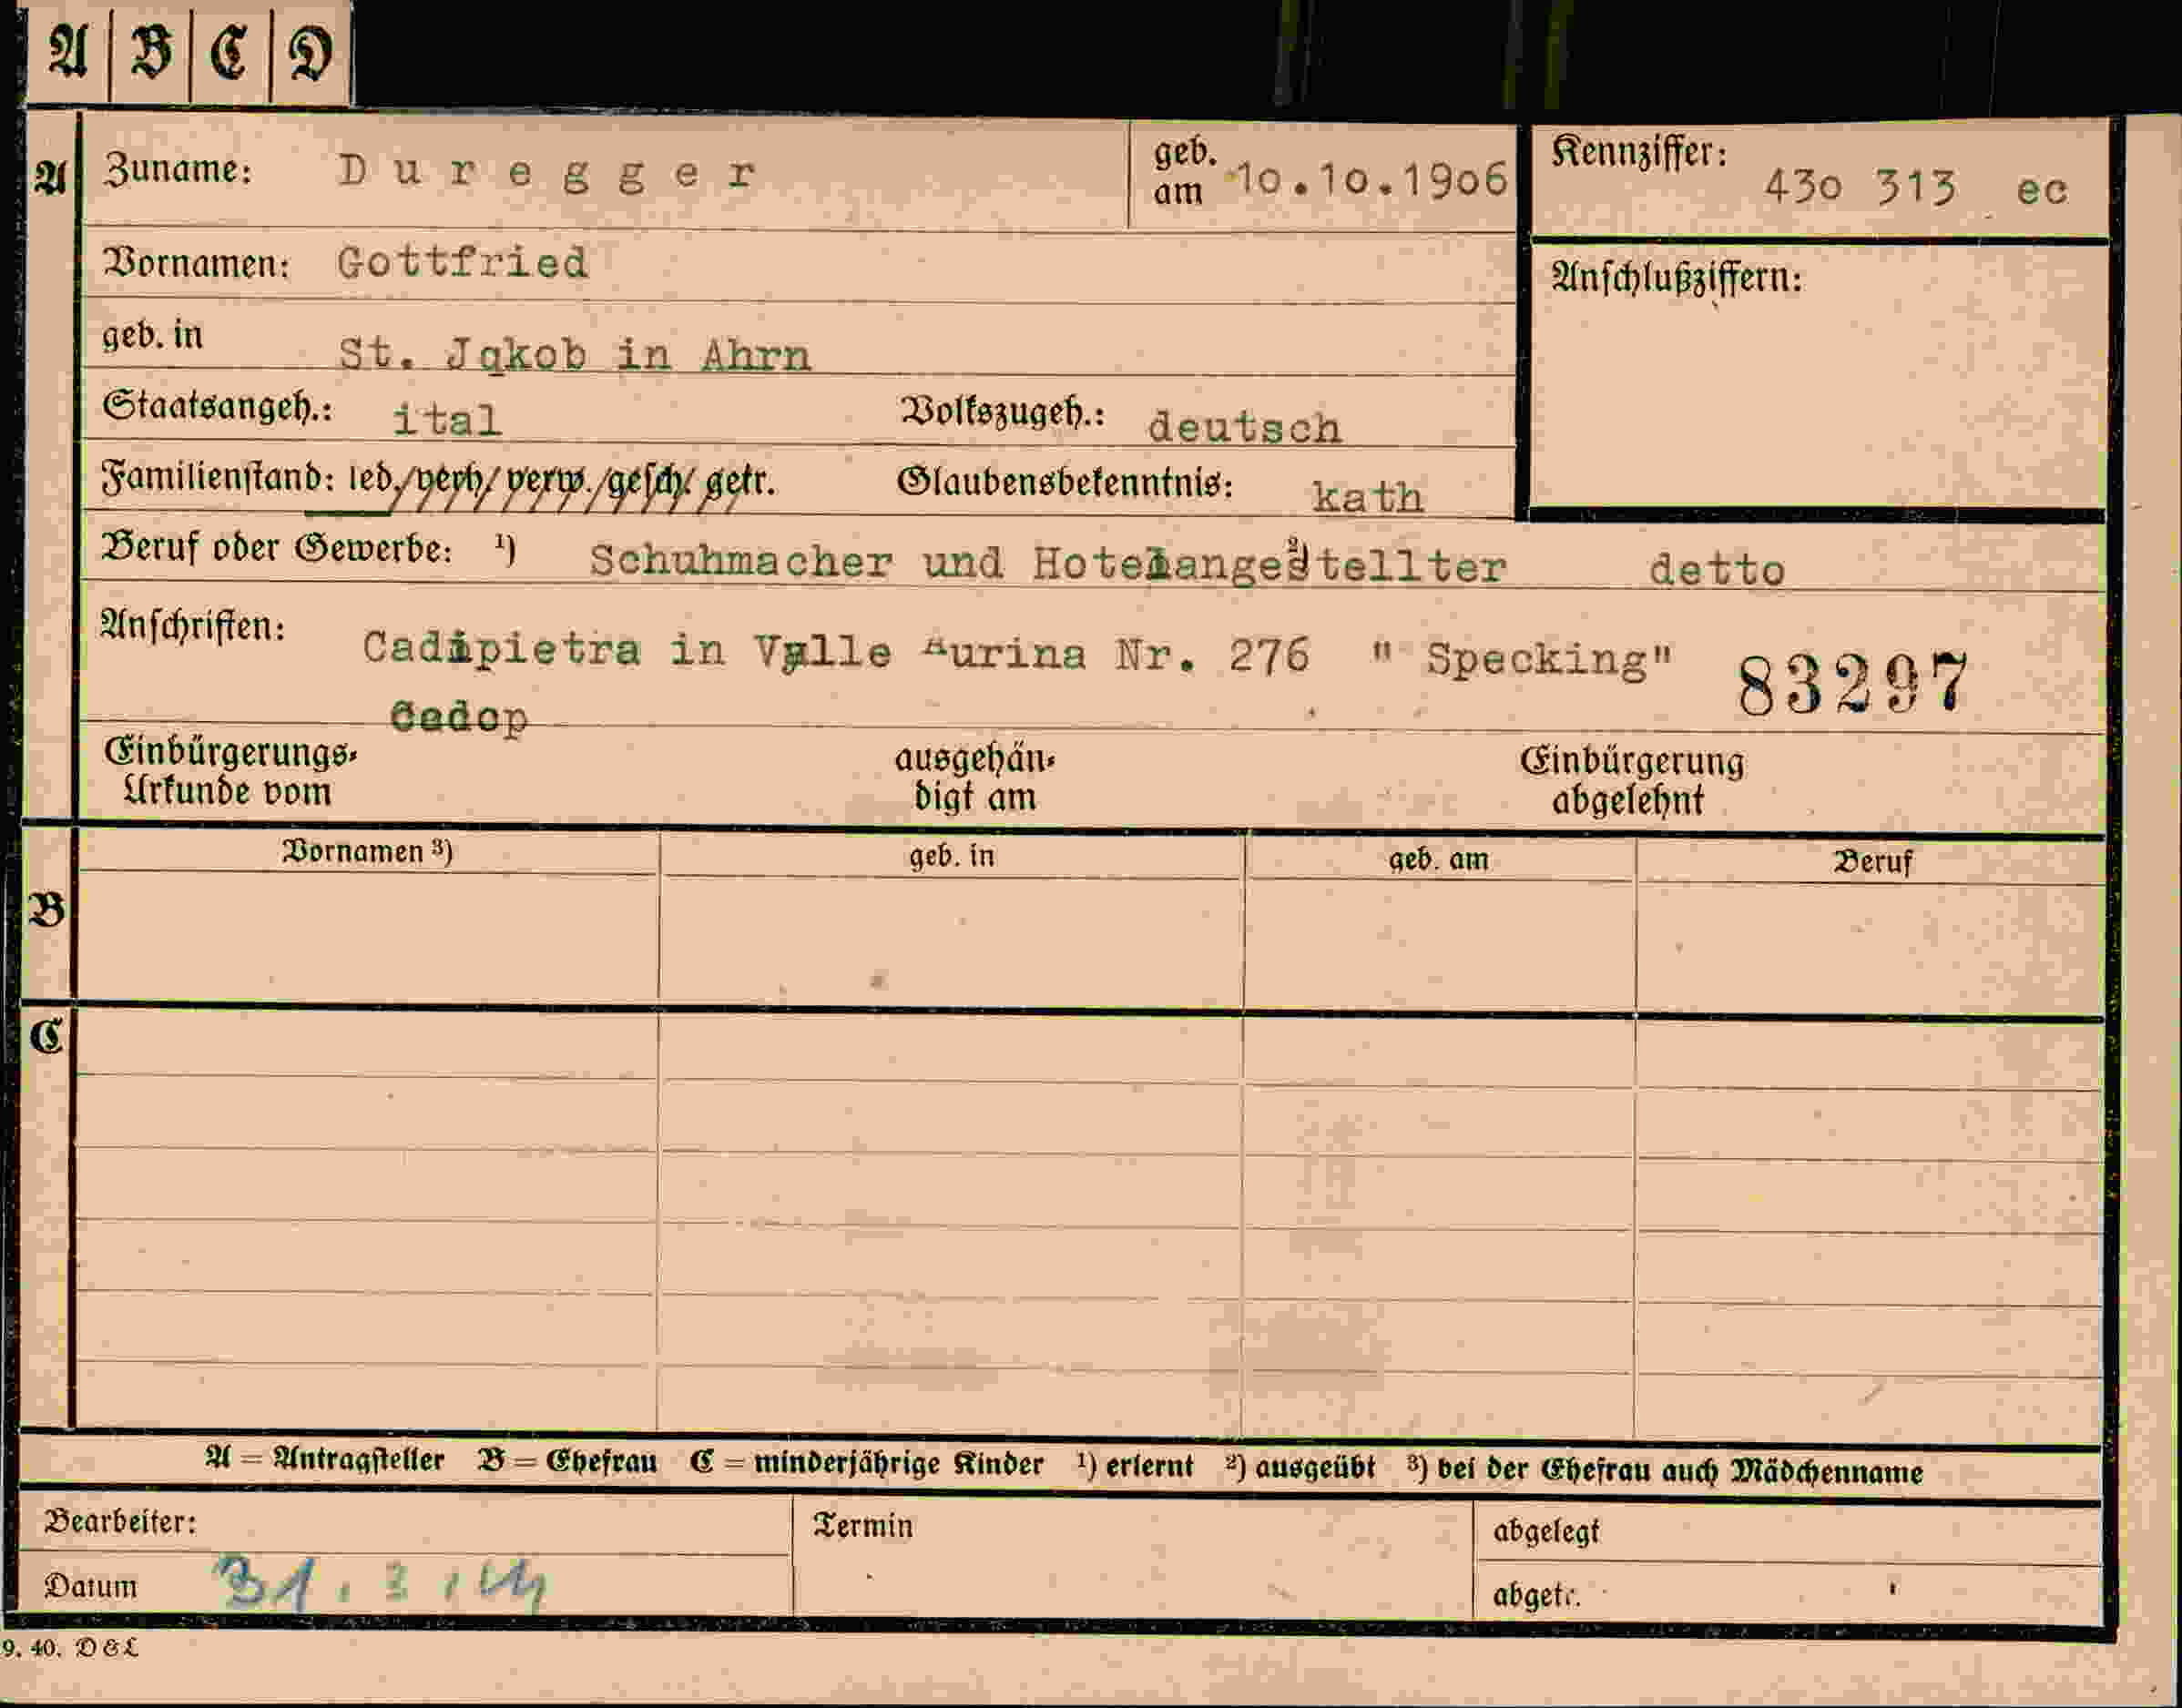 A B C D
A Zuname:Duregger geb. am 10.10.1906 Kennziffer: 430 313 ec
Vornamen: Gottfried Anschlußziffern:
geb. in St. Jakob in Ahrn
Staatsangeh.: ital Volkszugeh.: deutsch
Familienstand: led./verh/verw./gesch/getr. Glaubensbekenntnis: kath
Beruf oder Gewerbe: ¹) Schuhmacher und Hotelangestellter ²) detto
Anschriften: Cadipietra in Valle Aurina Nr. 276 " Specking" 83297
Cadop
Einbürgerungs- ausgehän- Einbürgerung
Urkunde vom digt am abgelehnt
Vornamen ³) geb. in geb. am Beruf
B
C
A = Antragsteller B = Ehefrau C = minderjährige Kinder ¹) erlernt ²) ausgeübt ³) bei der Ehefrau auch Mädchenname
Bearbeiter: Termin abgelegt
Datum 31. 3. abgetr.
9. 40. D&L